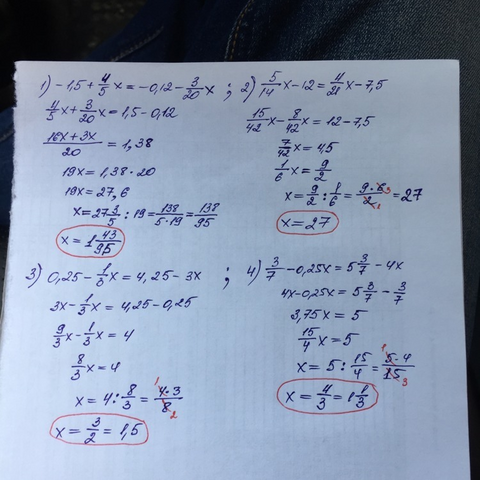 1) -1,5 + 4/5 x = -0,12 - 3/20 x ;
4/5 x + 3/20 x = 1,5 - 0,12
16x + 3x / 20 = 1,38
19x = 1,38 · 20
19x = 27,6
x = 27 3/5 : 19 = 138 / 5·19 = 138/95
x = 1 43/95
2) 5/14 x - 12 = 4/21 x - 7,5
15/42 x - 8/42 x = 12 - 7,5
7/42 x = 4,5
1/6 x = 9/2
x = 9/2 : 1/6 = 9·6 3 / 2 1 = 27
x = 27
3) 0,25 - 1/3 x = 4,25 - 3x ;
3x - 1/3 x = 4,25 - 0,25
9/3 x - 1/3 x = 4
8/3 x = 4
x = 4 : 8/3 = 1 4·3 / 8 2
x = 3/2 = 1,5
4) 3/7 - 0,25x = 5 3/7 - 4x
4x - 0,25x = 5 3/7 - 3/7
3,75x = 5
15/4 x = 5
x = 5 : 15/4 = 1 5·4 / 15 3
x = 4/3 = 1 1/3